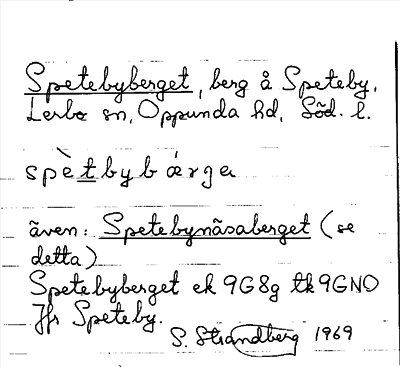 Spetebyberget, berg å Speteby,
Lerbo sn, Oppunda hd, Söd. l.
spètbybárga
även: Spetebynäsaberget (se
detta)
Spetebyberget ek 9G8g tk 9GNO
Jfr Speteby.
S. Strandberg 1969